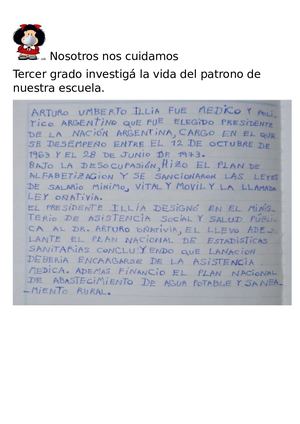 Nosotros nos cuidamos
Tercer grado investigá la vida del patrono de
nuestra escuela.
ARTURO UMBERTO ILLIA FUE MEDICO Y POLI
TICO ARGENTINO QUE FUE ELEGIDO PRESIDENTE
DE LA NACIÓN ARGENTINA, CARGO EN EL QUE
SE DESEMPEÑO ENTRE EL 12 DE OCTUBRE DE
1963 Y EL 28 DE JUNIO DE 1973.
BAJO LA DESOCUPASIÓN, HIZO EL PLAN DE
ALFABETIZACION Y SE SANCIONAROM LAS LEYES
DE SALARIO MINIMO, VITAL Y MOVIL Y LA LLAMADA
LEY OÑATIVIA.
EL PRESIDENTE ILLIA DESIGNÓ EN EL MINIS
TERIO DE ASISTENCIA SOCIAL Y SALUD PÚBLI
CA AL DR. ARTURO OÑATIVIA, EL LLEVO ADE
LANTE EL PLAN NACIONAL DE ESTADÍSTICAS
SANITARIAS CONCLUYENDO QUE LANACION
DEBERIA ENCARGARSE DE LA ASISTENCIA
MEDICA. ADEMAS FINANCIO EL PLAN NACIONAL
DE ABASTECIMIENTO DE AGUA POTABLE Y SANEA
MIENTO RURAL.